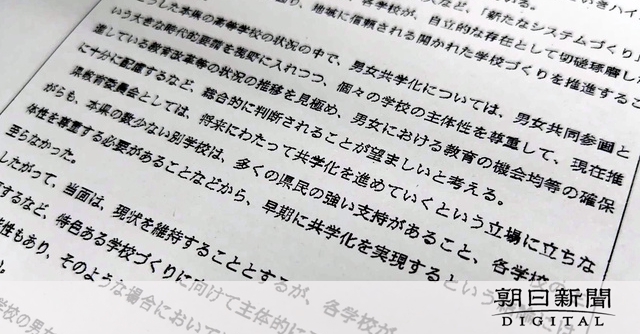 いきハイ
など、「新たなシステムづくり」
各学校が、自立的な存在として切磋琢磨し
地域に信頼される開かれた学校づくりを推進する
した本県の高等学校の状況の中で、男女共学化については、男女共同参画と
いう大きな時代的要請を視野に入れつつ、個々の学校の主体性を尊重して、現在推
進している教育改革等の状況の推移を見極め、男女における教育の機会均等の確保
に十分に配慮するなど、総合的に判断されることが望ましいと考える。
県教育委員会としては、将来にわたって共学化を進めていくという立場に立ちな
がらも、本県の数少ない別学校は、多くの県民の強い支持があること、各学校の
体性を尊重する必要があることなどから、早期に共学化を実現するという
至らなかった。
したがって、当面は、現状を維持することとするが、各学校が
するなど、特色ある学校づくりに向けて主体的に
性もあり、そのような場合において
学校の男女
朝日新聞
DIGITAL